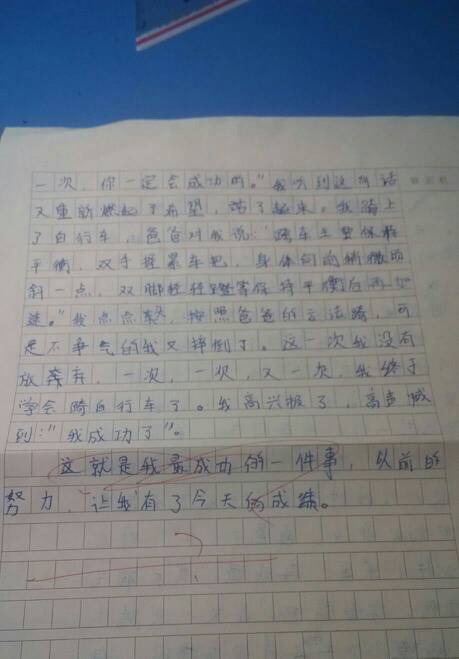 一次，你一定会成功的。"我听到这句话
又重新燃起了希望，站了起来。我踏上
了自行车，爸爸对我说："骑车主要保持
平衡，双手握紧车把，身体向前稍微倾
斜一点，双脚轻轻蹬等保持平衡后再加
速。"我点点头，按照爸爸的方法骑，可
是不争气的我又摔倒了。这一次我没有
放弃，一次，一次，又一次，我终于
学会骑自行车了。我高兴极了，高声喊
到："我成功了"。
这就是我最成功的一件事，以前的
努力，让我有了今天的成绩。